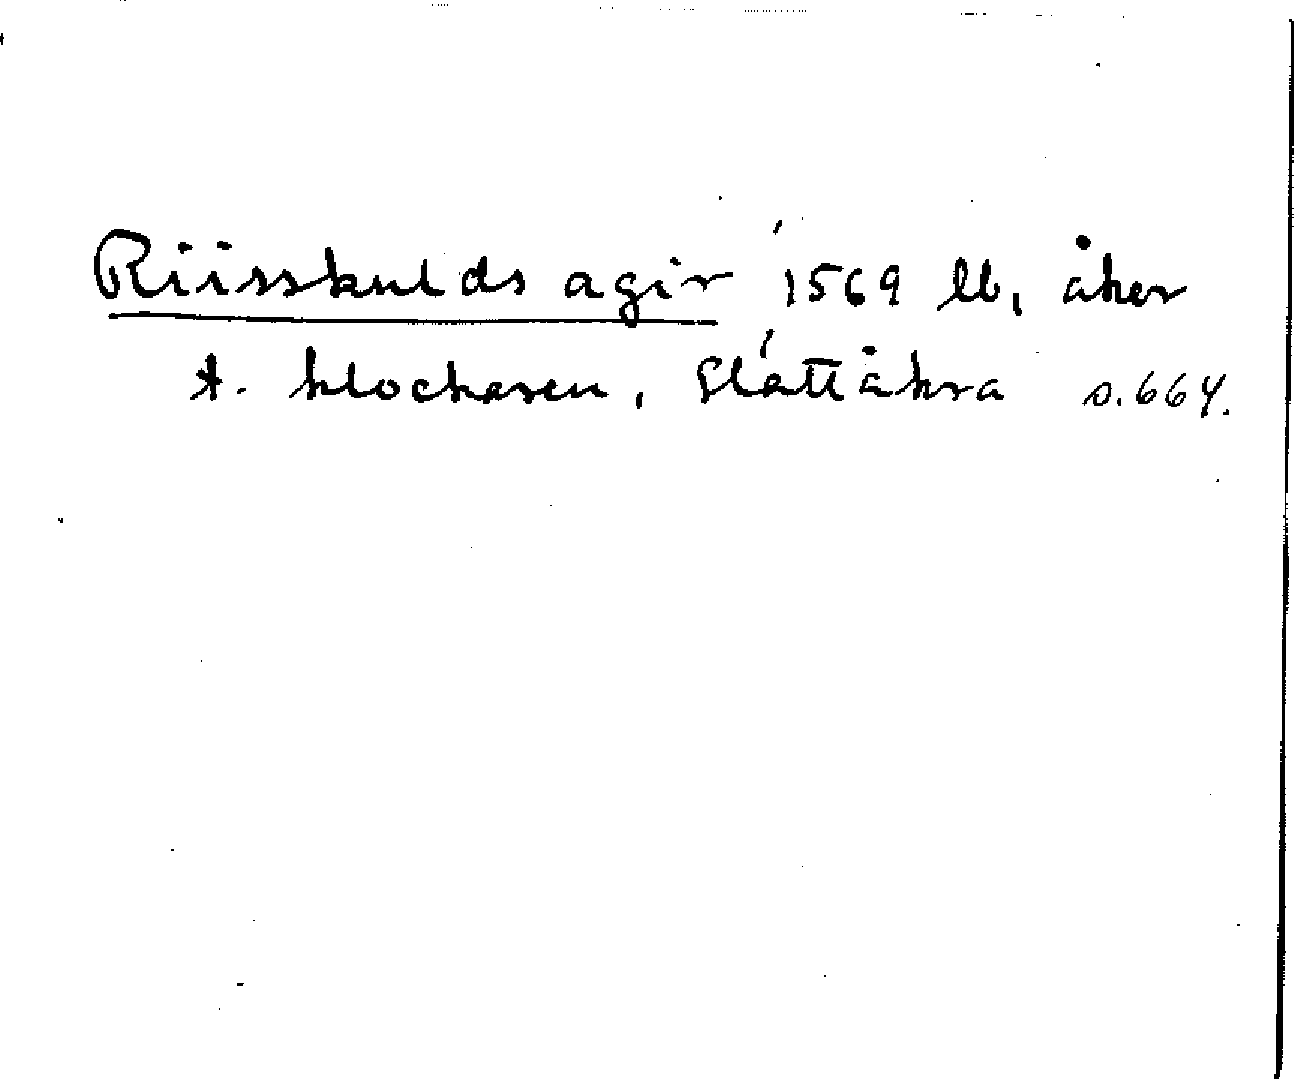 Riisskulds agir 1569 lb, åker
t. klockaren, Slättåkra s. 664.